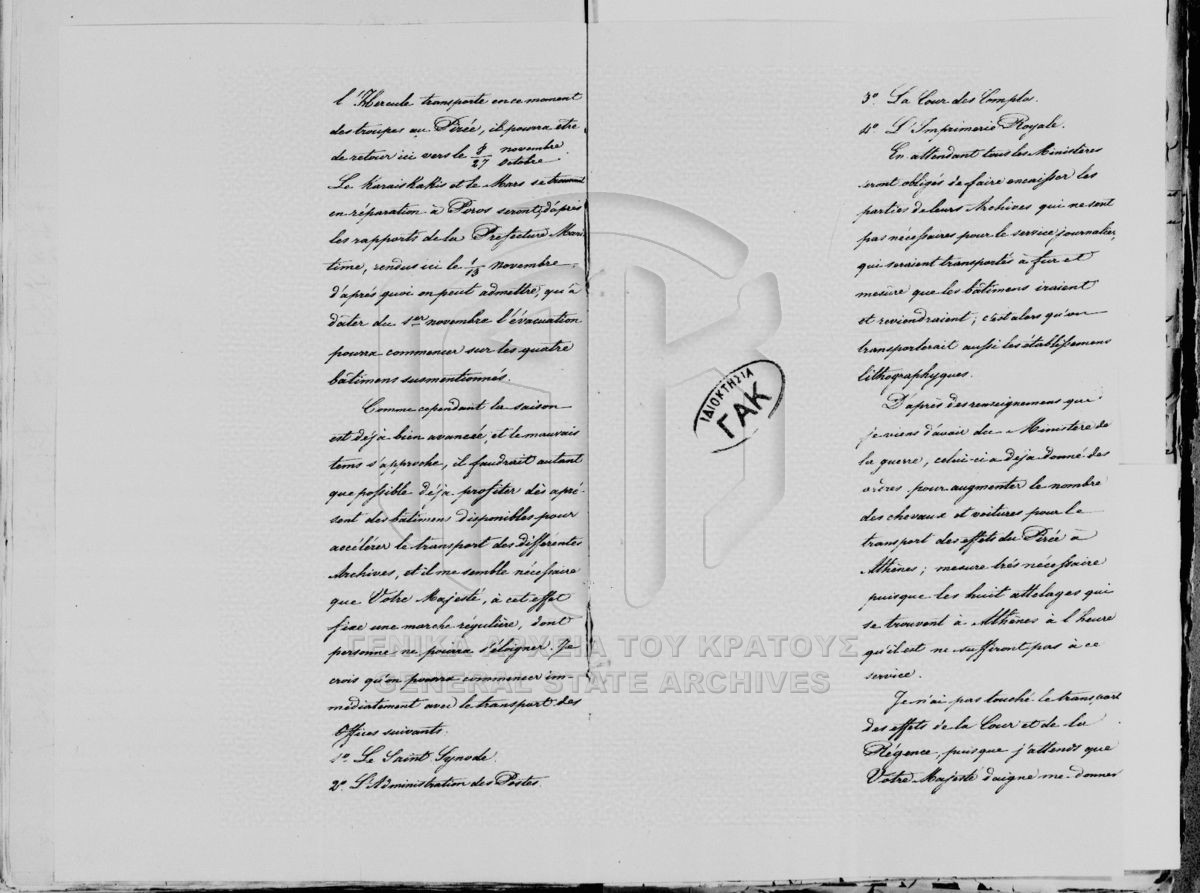 l'Hercule transporte en ce moment
des troupes au Pirée, il pourra être
de retour ici vers le 8/27 novembre/octobre.
Le Karaiskakis et le Mars se trouvant
en réparation à Poros seront, d'après
les rapports de la Préfecture Mari-
time, rendus ici le 1/13 novembre,
d'après quoi on peut admettre, qu'à
dater du 1er novembre l'évacuation
pourra commencer sur les quatre
bâtimens susmentionnés.
Comme cependant la saison
est déjà bien avancée, et le mauvais
tems s'approche, il faudrait autant
que possible déjà profiter dès apré-
sent des bâtimens disponibles pour
accélérer le transport des différentes
Archives, et il me semble nécessaire
que Votre Majesté, à cet effet
fixe une marche régulière, dont
personne ne pourra s'éloigner. Je
crois qu'on pourra commencer im-
médiatement avec le transport des
Offices suivants.
1o. Le Saint Synode.
2o. L'Administration des Postes.
3o. La Cour des Comptes.
4o. L'Imprimerie Royale.
En attendant tous les Ministères
seront obligés de faire encaisser les
parties de leurs Archives qui ne sont
pas nécessaires pour le service journalier,
qui seraient transportés à fur et
mesure que les bâtimens iraient
et reviendraient; c'est alors qu'on
transporterait aussi les établissemens
lithographyques.
D'après des renseignemens que
je viens d'avoir du Ministère de
la guerre, celui-ci a déja donné des
ordres pour augmenter le nombre
des chevaux et voitures pour le
transport des effets du Pirée à
Athènes; mesure très nécessaire
puisque les huit attelages qui
se trouvent à Athènes à l'heure
qu'il est ne suffiront pas à ce
service.
Je n'ai pas touché le transport
des effets de la Cour et de la
Régence, puisque j'attends que
Votre Majesté daigne me donner
ΙΔΙΟΚΤΗΣΙΑ
ΓΑΚ
ΓΕΝΙΚΑ ΑΡΧΕΙΑ ΤΟΥ ΚΡΑΤΟΥΣ
GENERAL STATE ARCHIVES